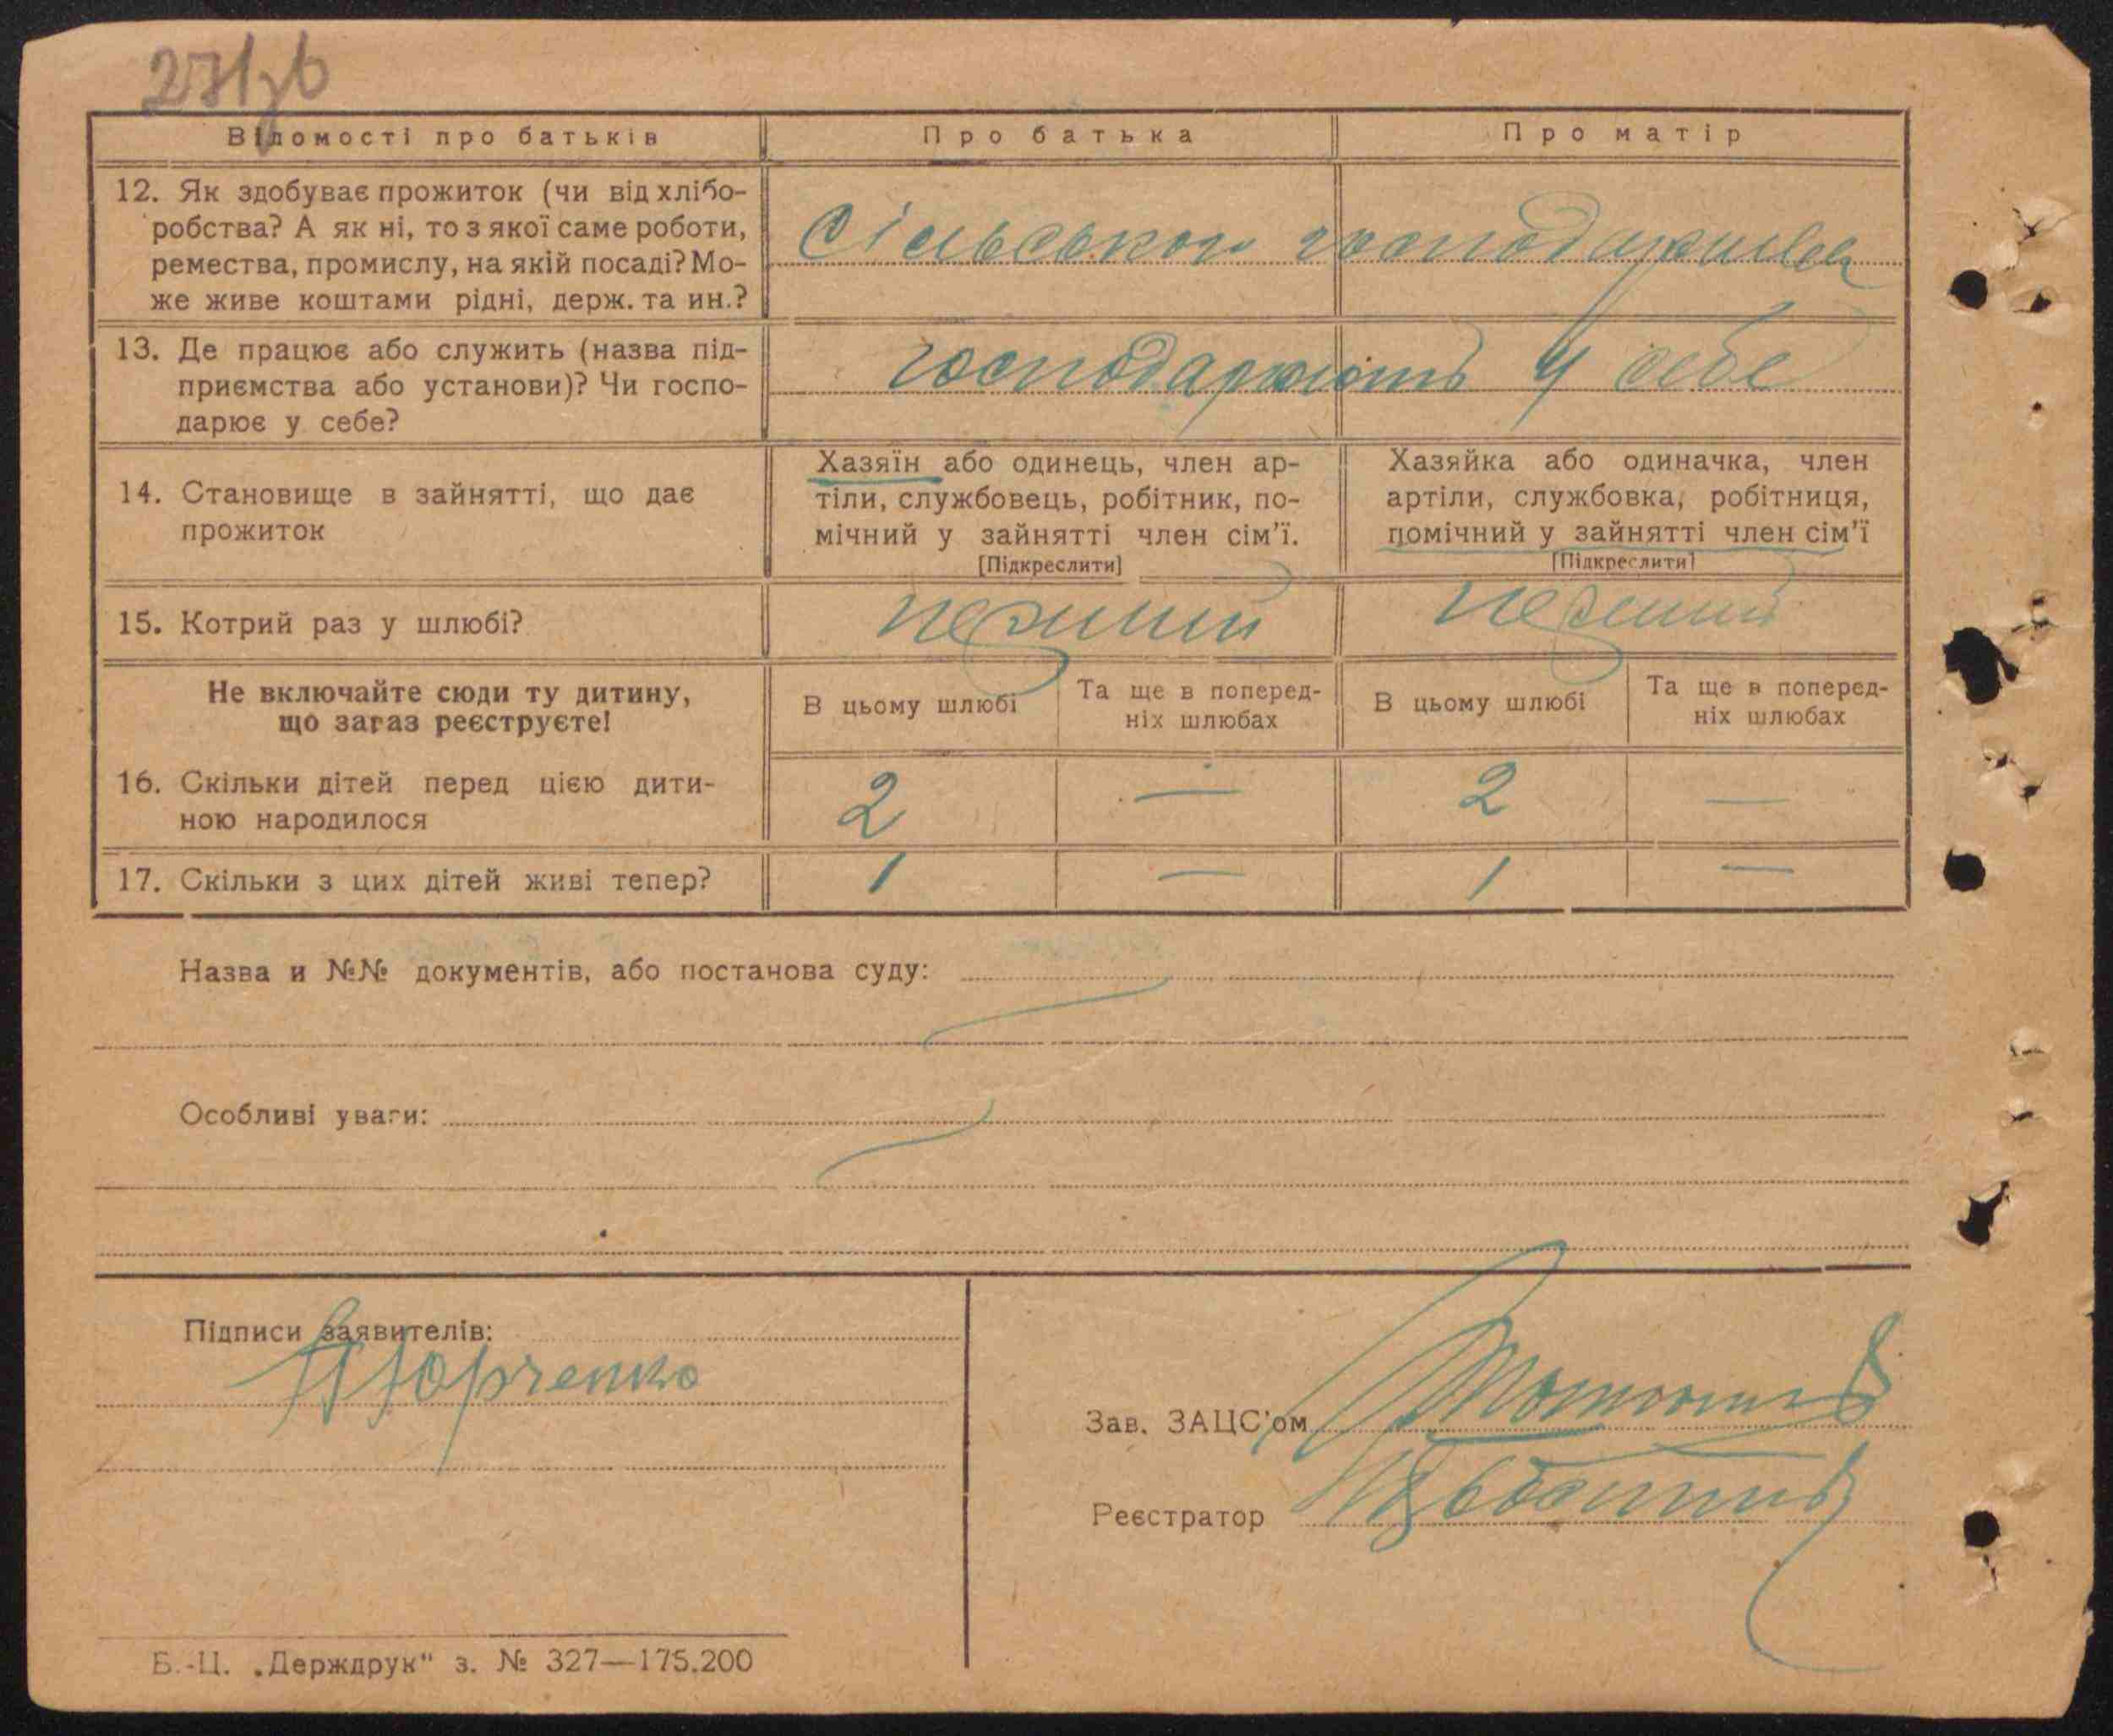 271зв
Відомості про батьків
Про батька
Про матір
12. Як здобуває прожиток (чи від хлібо-
робства? А як ні, то з якої саме роботи,
ремества, промислу, на якій посаді? Мо-
же живе коштами рідні, держ. та ин.?
сільського господарства
13. Де працює або служить (назва під-
приємства або установи)? Чи госпо-
дарює у себе?
господарюють у себе
14. Становище в зайнятті, що дає
прожиток
Хазяїн або одинець, член ар-
тіли, службовець, робітник, по-
мічний у зайнятті член сім'ї.
[Підкреслити]
Хазяйка або одиначка, член
артіли, службовка, робітниця,
помічний у зайнятті член сім'ї
[Підкреслити]
15. Котрий раз у шлюбі?
перший
перший
Не включайте сюди ту дитину,
що зараз реєструєте!
В цьому шлюбі
Та ще в поперед-
ніх шлюбах
В цьому шлюбі
Та ще в поперед-
ніх шлюбах
16. Скільки дітей перед цією дити-
ною народилося
2 — 2 —
17. Скільки з цих дітей живі тепер?
1 — 1 —
Назва и №№ документів, або постанова суду:
Особливі уваги:
Підписи заявителів:
Юрченко
Зав. ЗАЦС'ом
Реєстратор
Б.-Ц. „Держдрук" з. № 327—175.200